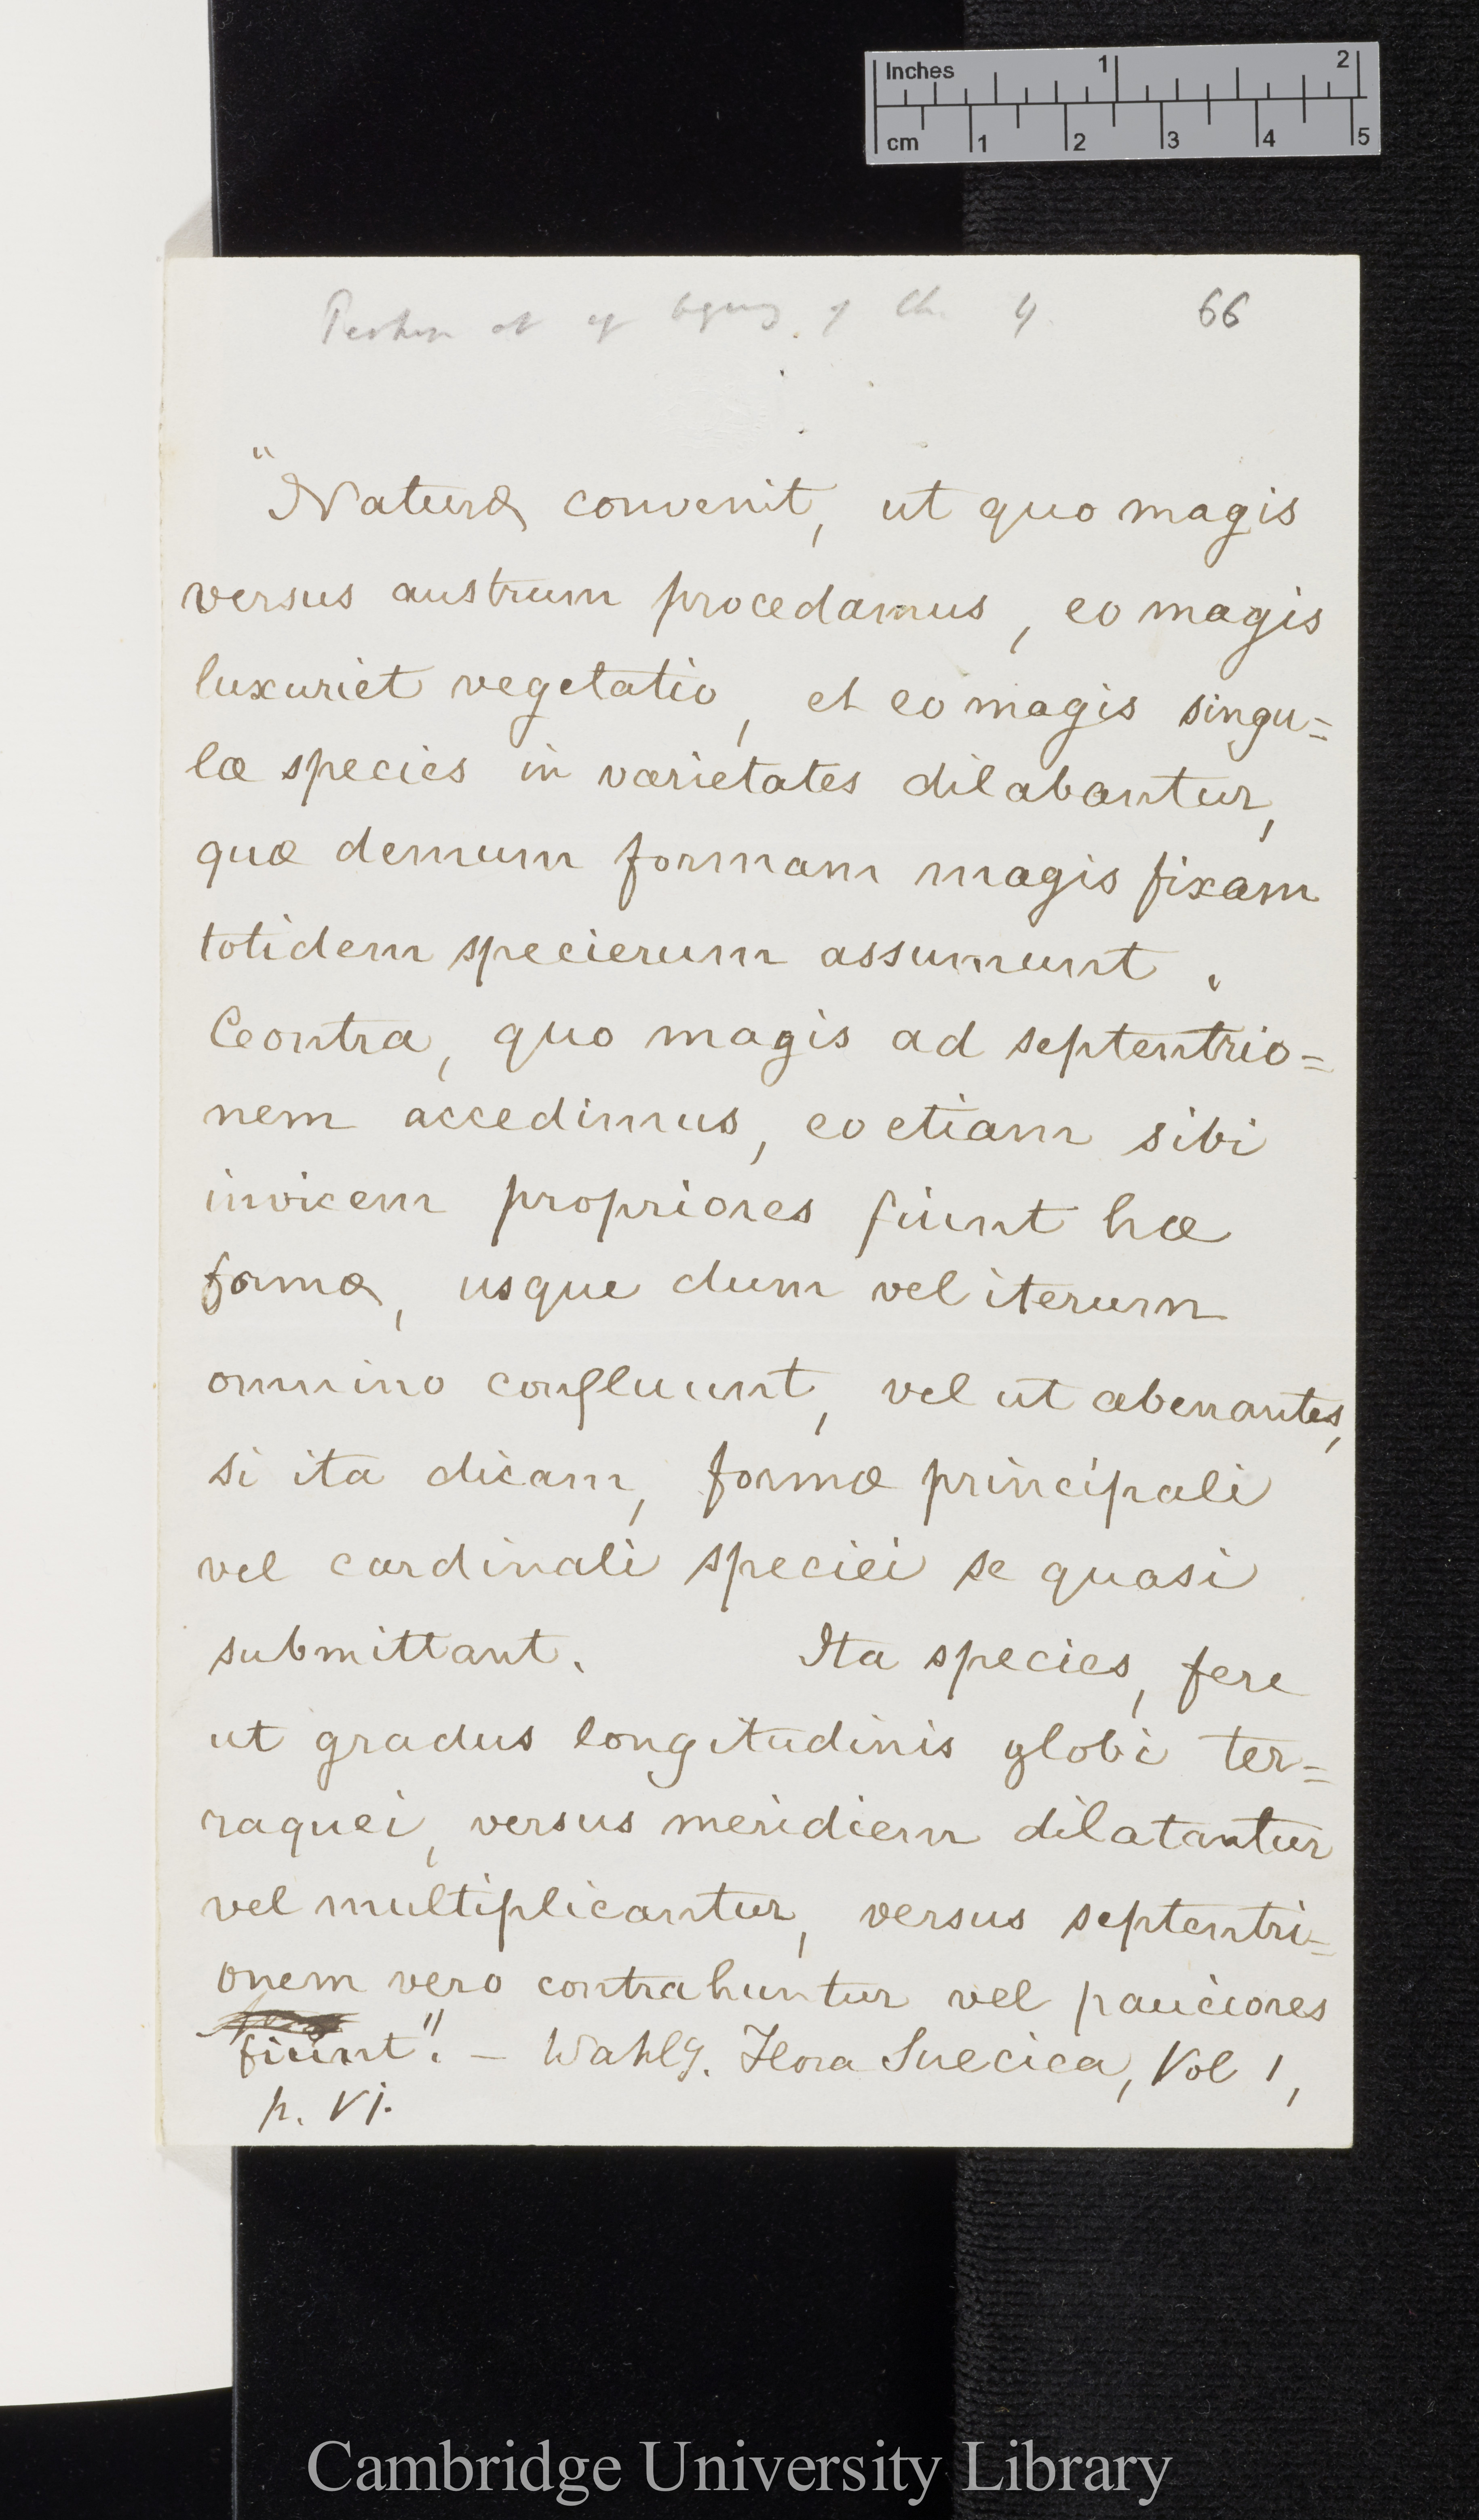 Inches 1 2
cm 1 2 3 4 5
at of 4 66
"Naturæ convenit, ut quo magis
versus austrum procedamus, eo magis
luxuriet vegetatio, et eo magis singu=
læ species in varietates dilabantur,
quæ demum formam magis fixam
totidem specierum assumunt.
Contra, quo magis ad septentrio=
nem accedimus, eo etiam sibi
invicem propriores fiunt hæ
formæ, usque dum vel iterum
omnino confluunt, vel ut aberrantes,
si ita dicam, formæ principali
vel cardinali speciei se quasi
submittant. Ita species, fere
ut gradus longitudinis globi ter=
raquei, versus meridiem dilatantur
vel multiplicantur, versus septentri=
onem vero contrahuntur vel pauciores
fiunt". — Wahlg. Flora Suecica, Vol 1,
p. VI.
Cambridge University Library